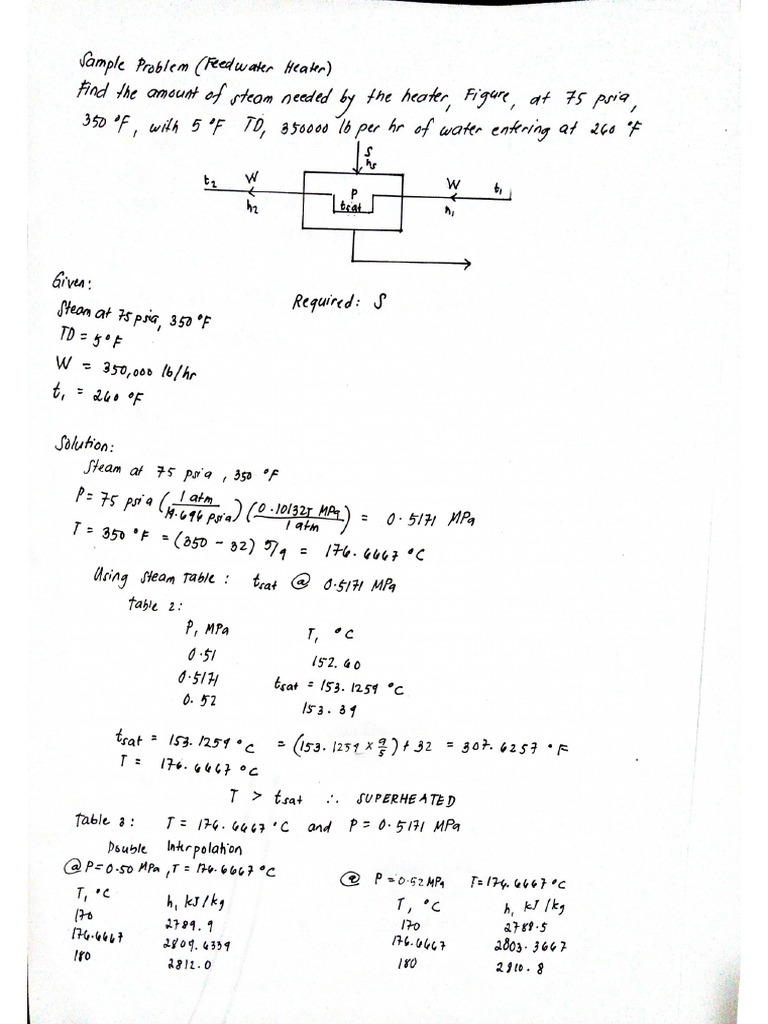 Sample Problem (Feedwater Heater)
Find the amount of steam needed by the heater, Figure, at 75 psia,
350 °F, with 5 °F TD, 350000 lb per hr of water entering at 260 °F
S
hs
t2 W
P
W t1
tsat
h2
h1
Given:
Required: S
Steam at 75 psia, 350 °F
TD = 5°F
W = 350,000 lb/hr
t1 = 260 °F
Solution:
Steam at 75 psia, 350 °F
P = 75 psia (1 atm / 14.696 psia) (0.101325 MPa / 1 atm) = 0.5171 MPa
T = 350 °F = (350 - 32) 5/9 = 176.6667 °C
Using Steam Table: tsat @ 0.5171 MPa
Table 2:
P, MPa T, °C
0.51 152.60
0.5171 tsat = 153.1259 °C
0.52 153.39
tsat = 153.1259 °C = (153.1259 x 9/5) + 32 = 307.6257 °F
T = 176.6667 °C
T > tsat ∴ SUPERHEATED
Table 3: T = 176.6667 °C and P = 0.5171 MPa
Double Interpolation
@ P = 0.50 MPa, T = 176.6667 °C
@ P = 0.52 MPa T = 176.6667 °C
T, °C h, kJ/kg
T, °C h, kJ/kg
170 2789.9
170 2788.5
176.6667 2809.6339
176.6667 2803.3667
180 2812.0
180 2810.8